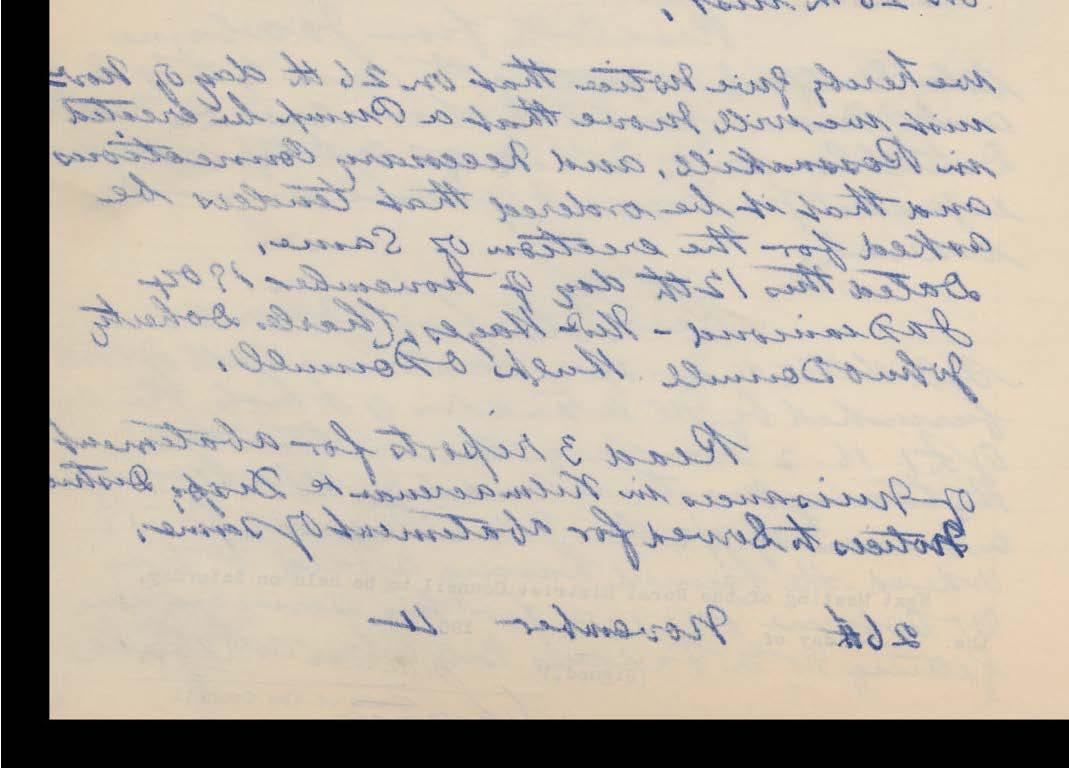 on 26th inst,
We hereby give notice that on 26th day of Novr
inst we will move that a Pump be erected
in Rosnakill, and necessary Connections
and that it be ordered that tenders be
asked for the erection of Same.
Dated this 12th day of November 1904
Diamond - Hay, Charles Doherty
John O Donnell Hugh O Donnell.
Read 3 reports for abatement
of Nuisances in Kilmacrenan Disp, Distric
Notices to Serve for abatement of same.
Next Meeting of the Rural District Council to be held on Saturday,
the 26th day of November 190 4
(Signed)
of the Council